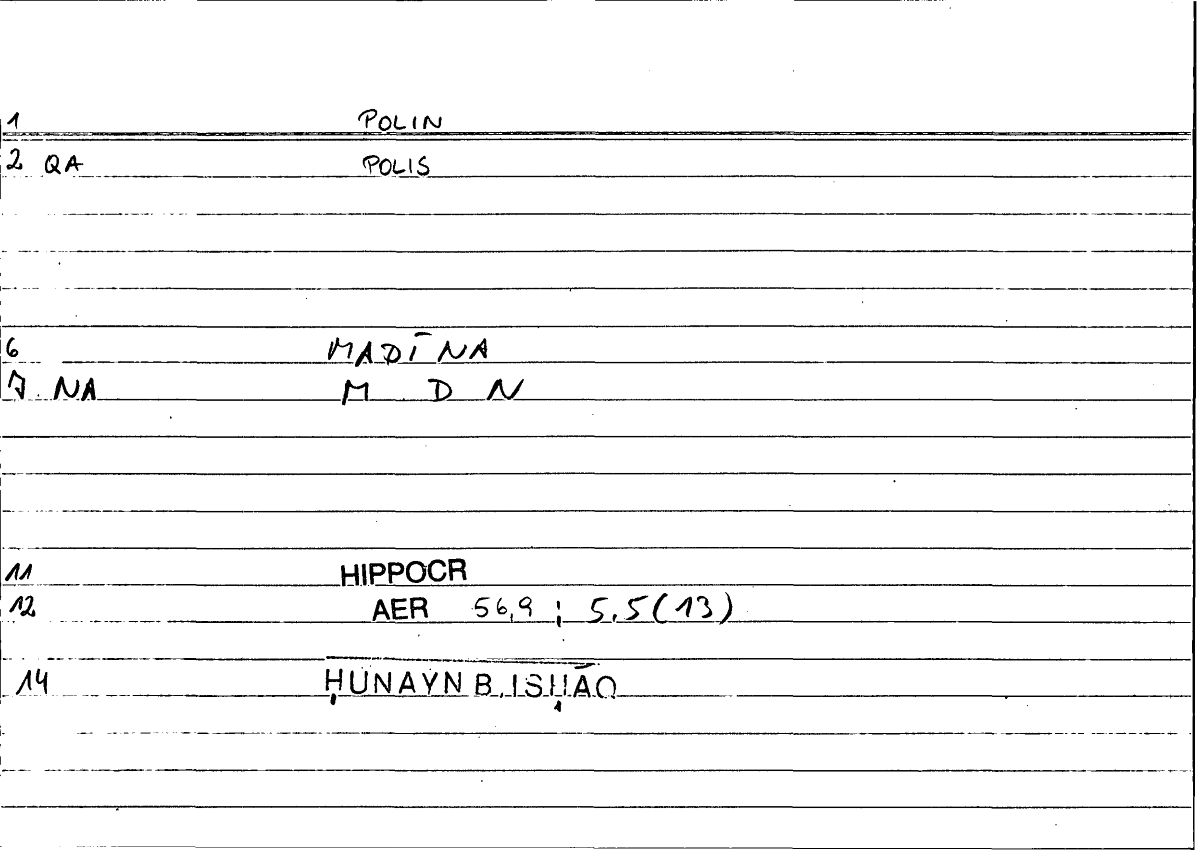 1 POLIN
2 QA POLIS
6 MADĪNA
7 NA M D N
11 HIPPOCR
12 AER 56,9 ; 5,5(13)
14 ḤUNAYN B. ISḤĀQ